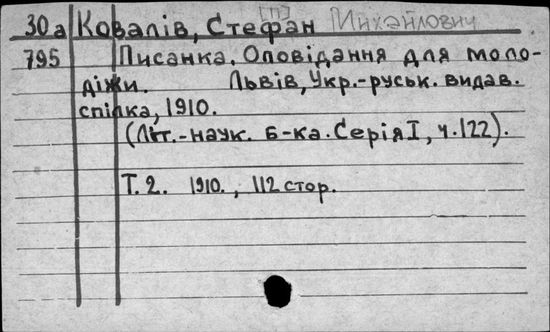 30а Ковалів, Стефан Михайлович
795 Писанка. Оповідання для моло-
діжи. Львів, Укр.-руськ. видав.
спілка, 1910.
(Літ.-наук. Б-ка. Серія I, ч.122).
Т. 2. 1910., 112 стор.